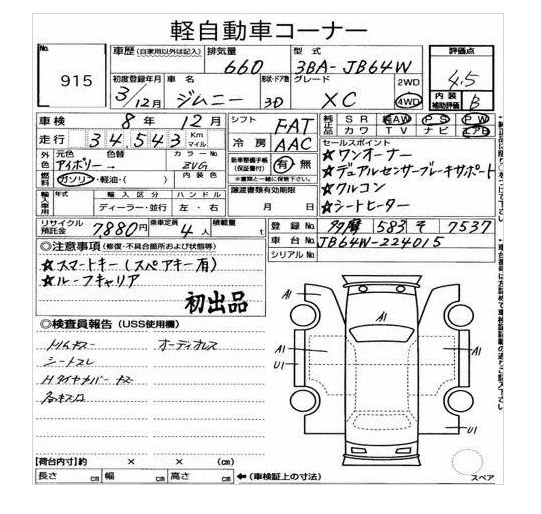 軽自動車コーナー
No. 915
車歴 (自家用以外は記入) 排気量 660 型式 3BA-JB64W 評価点 4.5
初度登録年月 3/12月 車名 ジムニー 形状・ドア数 3D グレード XC 2WD 4WD 内装補助評価 B
車検 8年 12月 シフト FAT 純正品 SR AW PS PW
走行 34,543 Km マイル 冷房 AAC カワ TV ナビ エアB
外色 元色 アイボリー 色替 カラーNo. ZVG 新車整備手帳(保証書付) 有・無
セールスポイント
☆ワンオーナー
☆デュアルセンサーブレーキサポート
☆クルコン
☆シートヒーター
燃料 ガソリン・軽油・( ) 内装色
輸入車用 輸入区分 ハンドル 譲渡書類有効期限
ディーラー・並行 左・右 月 日
リサイクル預託金 7,880円 乗車定員 4人 積載量 t
登録No. 多摩 583 そ 7537
車台No. JB64W-224015
シリアルNo.
◎注意事項 (修復・不具合箇所および状態等)
☆スマートキー(スペアキー有)
☆ルーフキャリア
初出品
◎検査員報告 (USS使用欄)
オーディオレス
シートスレ
A1
A1
A1
U1
A1
U1
スペア
【荷台内寸】約 × × (cm)
長さ cm 幅 cm 高さ cm ←(車検証上の寸法)